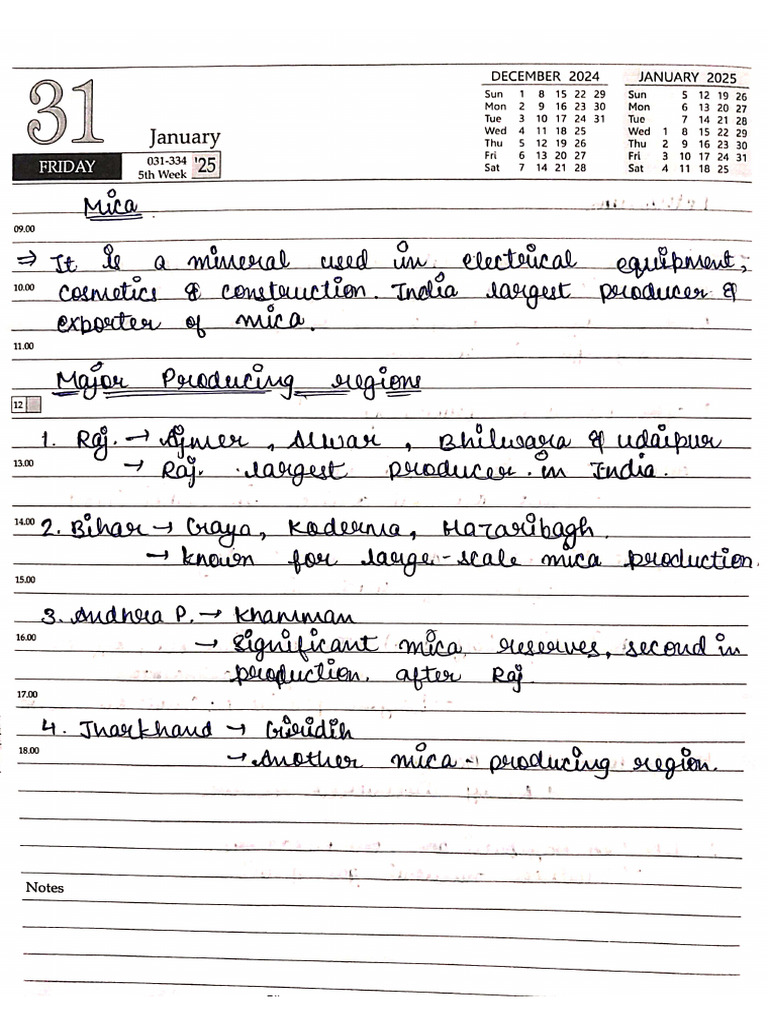 31
January
FRIDAY
031-334
5th Week
'25
DECEMBER 2024
Sun 1 8 15 22 29
Mon 2 9 16 23 30
Tue 3 10 17 24 31
Wed 4 11 18 25
Thu 5 12 19 26
Fri 6 13 20 27
Sat 7 14 21 28
JANUARY 2025
Sun 5 12 19 26
Mon 6 13 20 27
Tue 7 14 21 28
Wed 1 8 15 22 29
Thu 2 9 16 23 30
Fri 3 10 17 24 31
Sat 4 11 18 25
Mica
09.00
⇒ It is a mineral used in electrical equipment,
10.00 cosmetics & construction. India largest producer &
exporter of mica.
11.00
Major Producing regions
12
1. Raj. → Ajmer, Alwar, Bhilwara & Udaipur
13.00 → Raj. largest producer in India.
14.00 2. Bihar → Gaya, Koderma, Hazaribagh.
→ known for large-scale mica production.
15.00
3. Andhra P. → Khamman
16.00 → Significant mica reserves, second in
production after Raj
17.00
4. Jharkhand → Giridih
18.00 → Another mica-producing region.
Notes